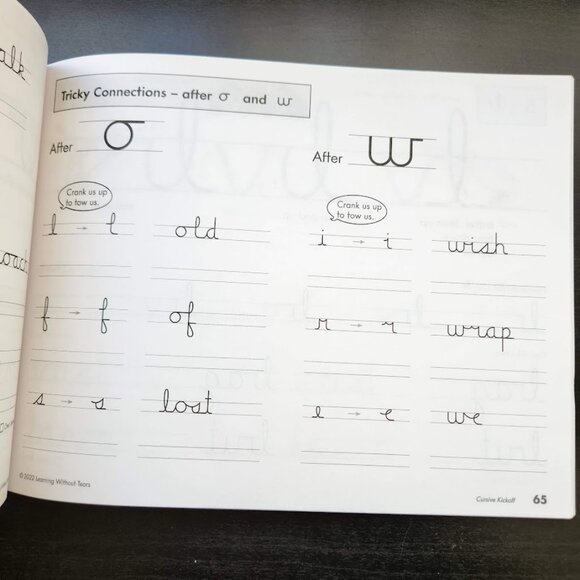 alk
oach
Tricky Connections – after o and w
After o
After w
Crank us up
to tow us.
Crank us up
to tow us.
l → l old
i → i wish
f → f of
r → r wrap
s → s lost
e → e we
© 2022 Learning Without Tears
Cursive Kickoff 65